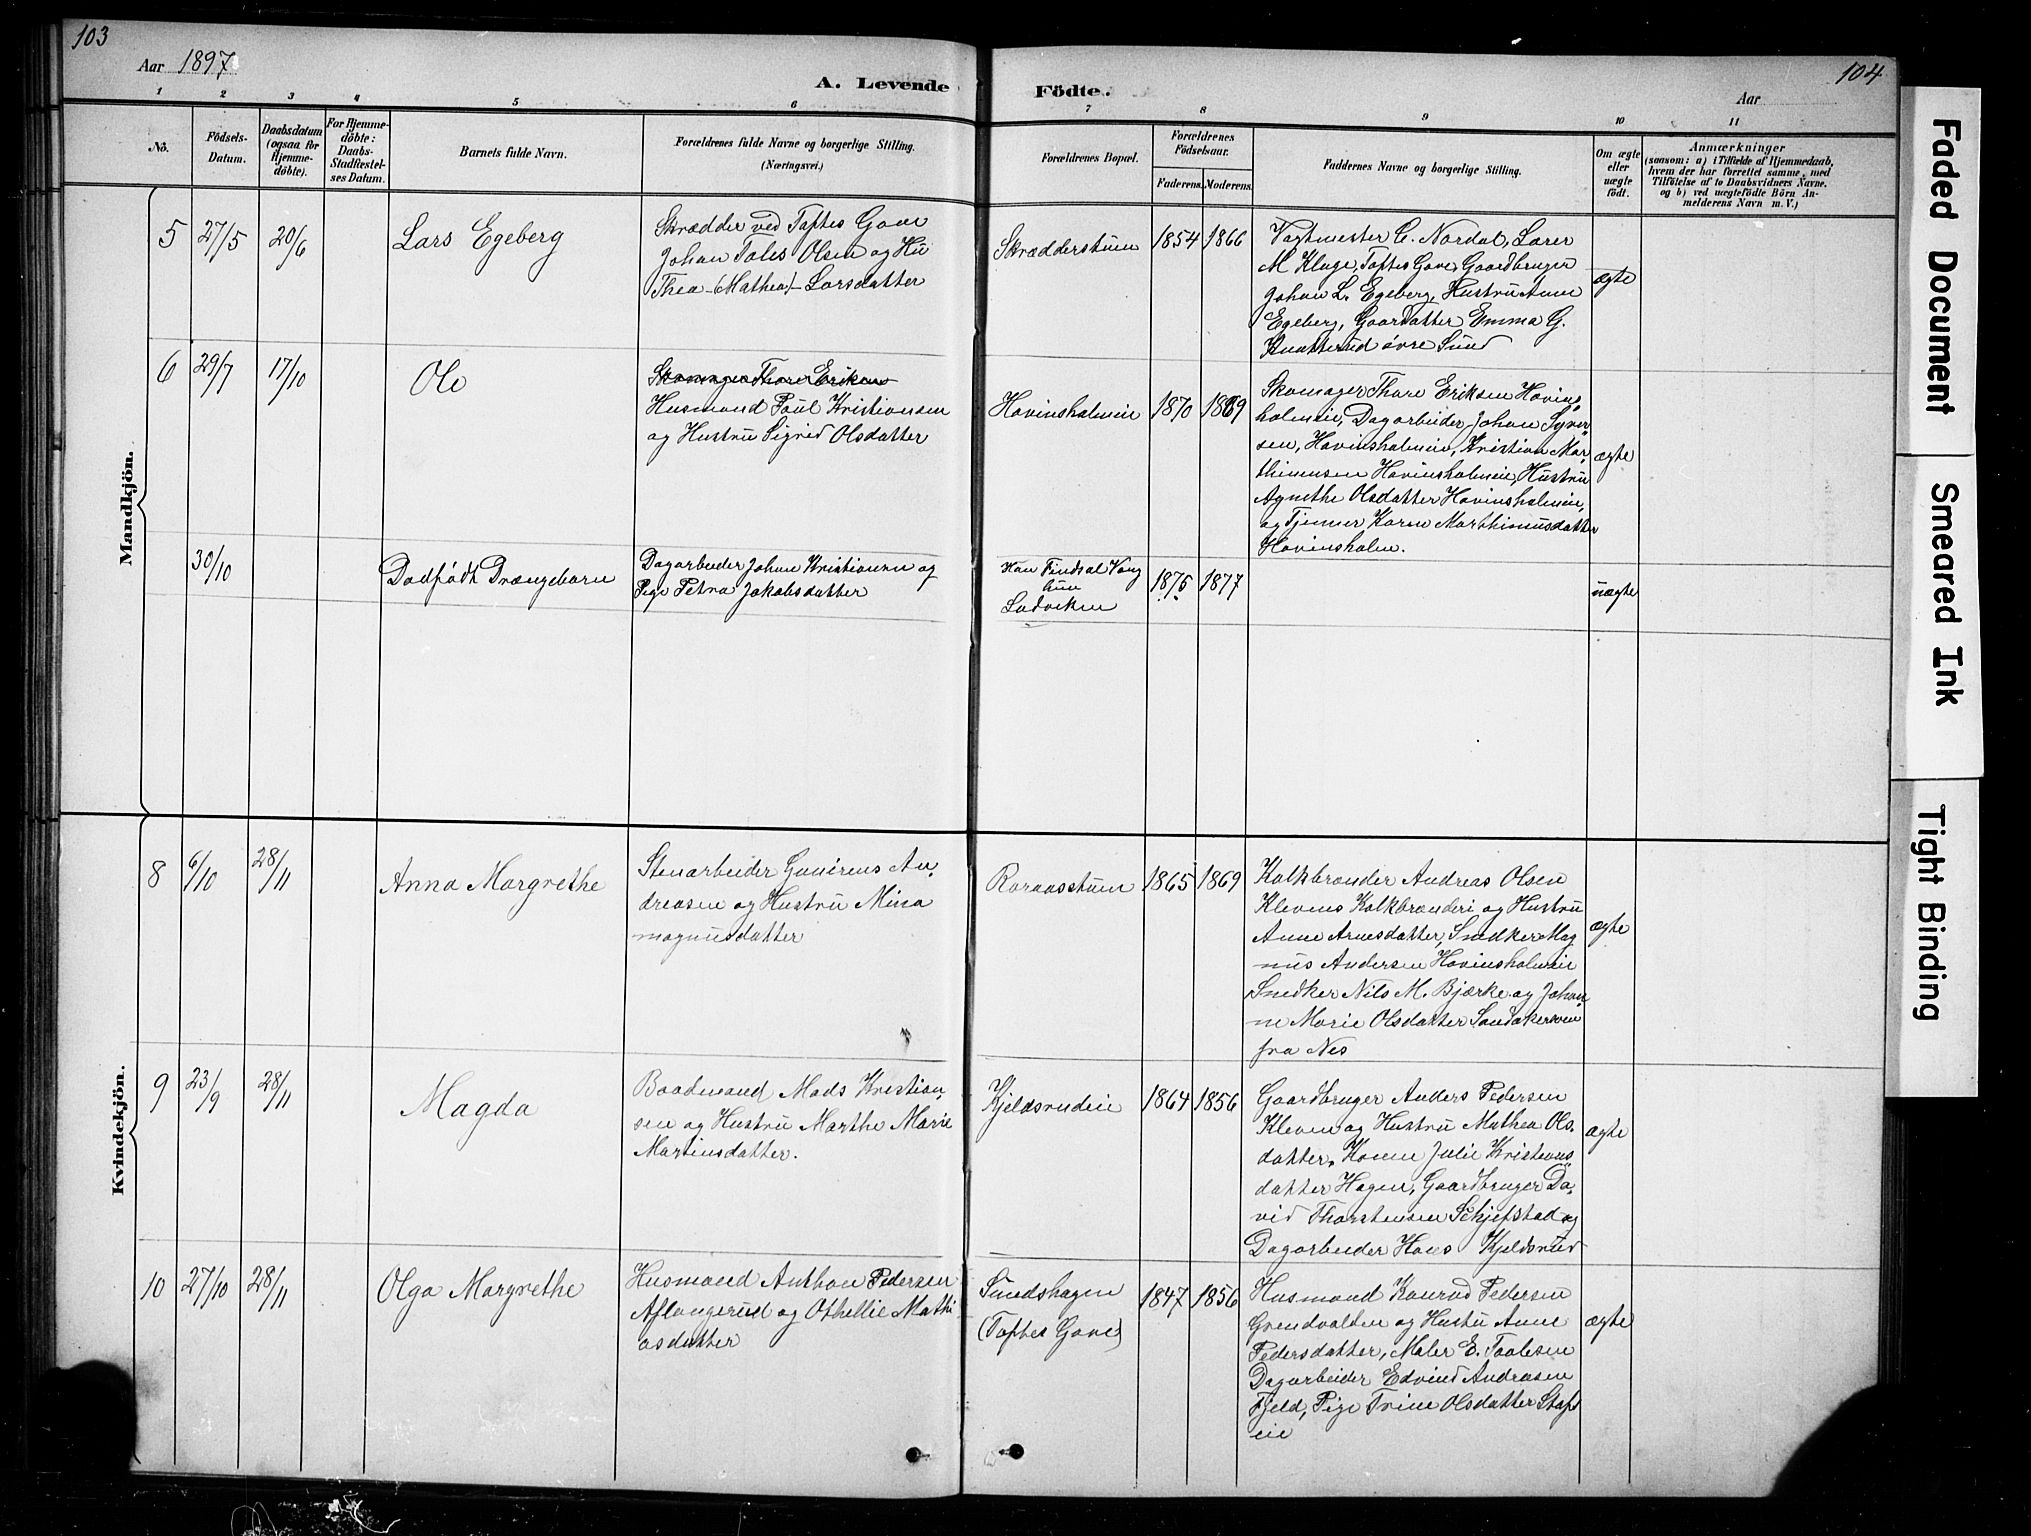 103
Aar 1897
A. Levende
Födte.
Aar
104
1
2
3
4
5
6
7
8
9
10
11
Nô.
Födsels-
Datum.
Daabsdatum
(ogsaa for
Hjemme-
döbte).
For Hjemme-
döbte:
Daabs-
Stadfæstel-
ses Datum.
Barnets fulde Navn.
Forældrenes fulde Navne og borgerlige Stilling.
(Næringsvei.)
Forældrenes Bopæl.
Forældrenes
Födselsaar.
Faderens.
Moderens.
Faddernes Navne og borgerlige Stilling.
Om ægte
eller
uægte
födt.
Anmærkninger
(saasom: a) i Tilfælde af Hjemmedaab,
hvem der har forrettet samme, med
Tilföielse af to Daabsvidners Navne,
og b) ved uægtefödte Börn An-
melderens Navn m. V.)
Mandkjön.
5
27/5
20/6
Lars Egeberg
Skrædder ved Toftes Gave
Johan Tolis Olsen og Hu
Thea (Mathea) Larsdatter
Skrædderstuen
1854
1866
Vagtmester C. Nordal, Lærer
M Kluge, Toftes Gave, Gaardbruger
Johan L. Egeberg, Hustru Anne
Egeberg, Gaardatter Emma G.
Knatterud øvre Sund
ægte
6
29/7
17/10
Ole
Skomager Thore Eriksen
Husmand Poul Kristiansen
og Hustru Sigrid Olsdatter
Hovinsholmeie
1870
1869
Skomager Thore Eriksen Hovins
holmeie, Dagarbeider Johan Syver
sen, Hovinsholmeie, Kristian Mar
thinusen Hovinsholmeie, Hustru
Agnethe Olsdatter Hovinsholmeie,
og Tjener Karen Marthinusdatter
Hovinsholm.
ægte
30/10
Dødfødt Drængebarn
Dagarbeider Johan Kristiansen og
Pige Petra Jakobsdatter
Han Findsal Vang
hun
Ludviken
1875
1877
uægte
Kvindekjön.
8
6/10
28/11
Anna Margrethe
Stenarbeider Gunerius An
dreasen og Hustru Mina
magnusdatter
Roraasstuen
1865
1869
Kalkbrænder Andreas Olsen
Klevens Kalkbrænderi og Hustru
Anne Arnesdatter, Snedker Mag
nus Andersen Hovinsholmeie
Snedker Nils M. Bjærke og Johan
ne Marie Olsdatter Sandakereie
fra Nes
ægte
9
23/9
28/11
Magda
Baadmand Mads Kristian
sen og Hustru Marthe Marie
Martinsdatter.
Kjeldsrudeie
1864
1856
Gaardbruger Anders Pedersen
Kleven og Hustru Mathea Ols
datter, Konen Julie Kristians
datter Hagen, Gaardbruger Da
vid Thorstensen Schjefstad og
Dagarbeider Hans Kjeldsrud
ægte
10
27/10
28/11
Olga Margrethe
Husmand Anthon Pedersen
Aflangerud og Othellie Mathi
asdatter
Sundshagen
(Toftes Gave)
1847
1856
Husmand Konrad Pedersen
Grendvolden og Hustu Anne
Pedersdatter, Maler E. Paalesen
Dagarbeider Edvind Andreasen
Fjeld, Pige Trine Olsdatter Staf
eie
ægte
Faded Document
Smeared Ink
Tight Binding